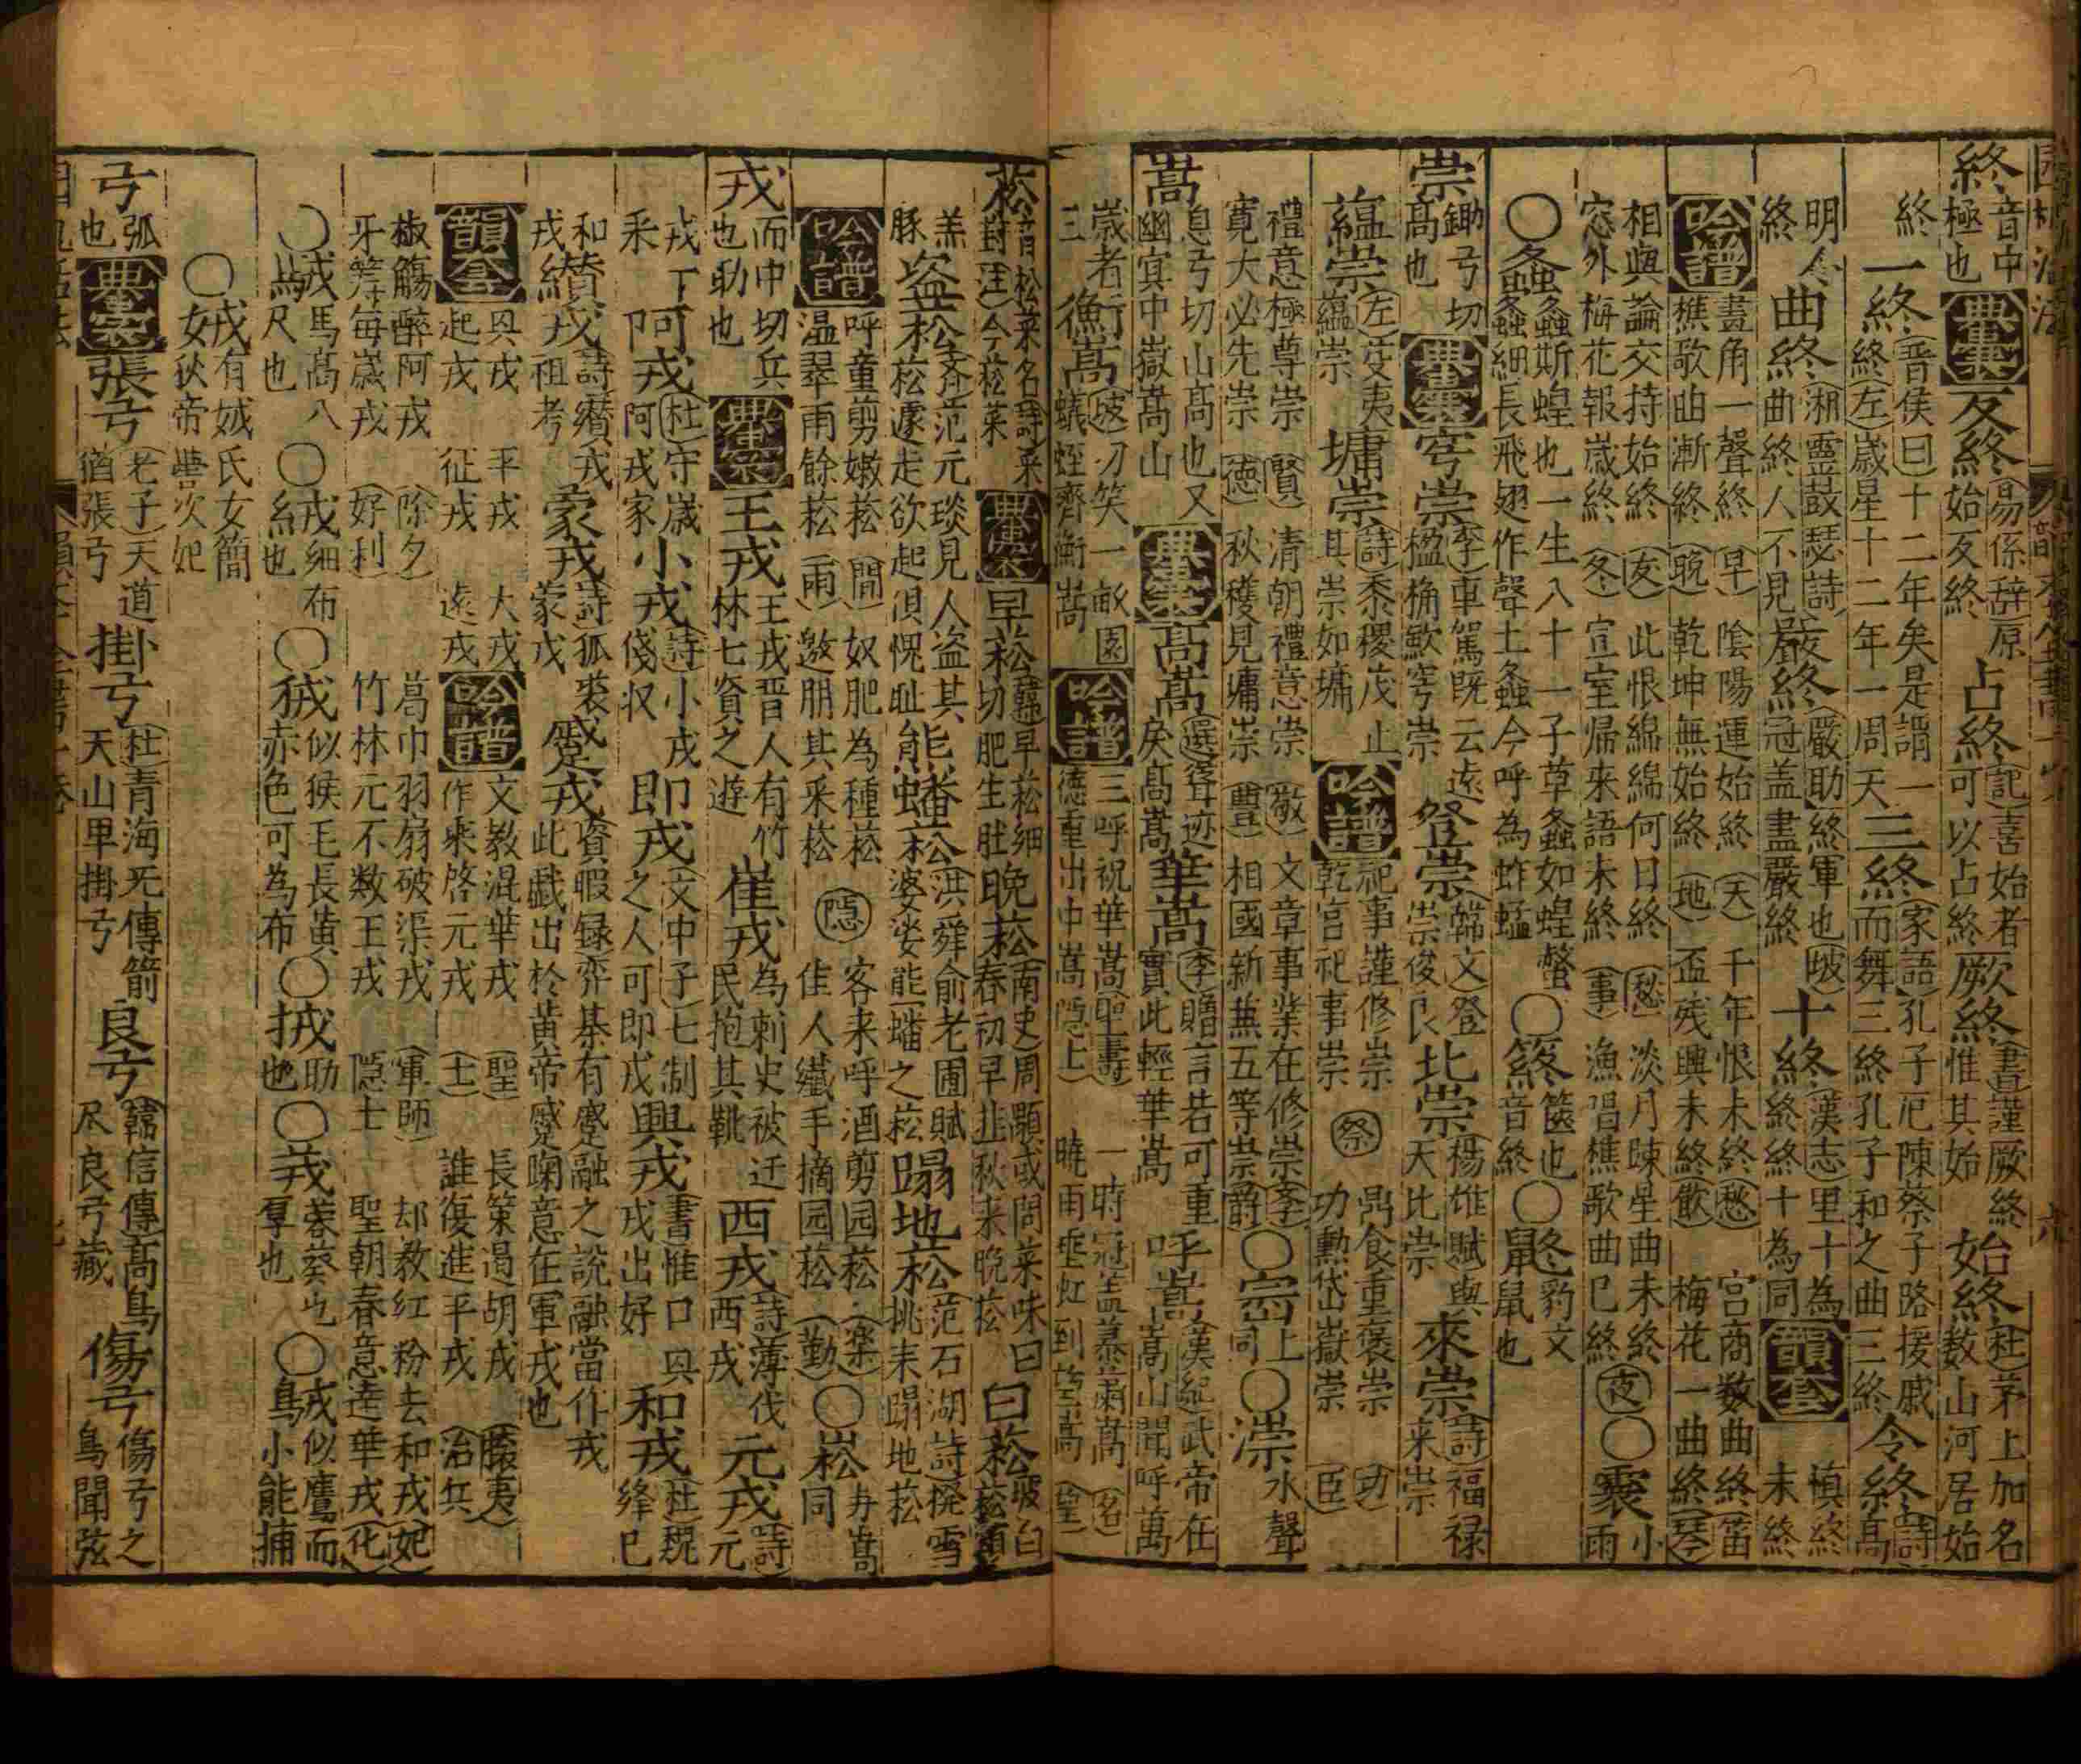 終音中極也典實反終易係辞原始反終占終記喜始者可以占終厥終書謹厥終惟其始始終杜茅上加名数山河居始
終一終晋侯曰十二年矣是謂一終左歲星十二年一周天三終家語孔子厄陳蔡子路援戚而舞三終孔子和之曲三終令終詩高
明令終曲終湘靈鼓瑟詩曲終人不見嚴終嚴助終軍也坡冠盖盡嚴終十終漢志里十為終終十為同韻套慎終末終
吟譜畫角一聲終早樵歌曲漸終晚陰陽運始終天乾坤無始終地千年恨未終愁盃残興未終飲宮商数曲終笛梅花一曲終琴
相與論交持始終友窓外梅花報歲終冬此恨綿綿何日終愁宣室帰來語未終事淡月踈星曲未終夜漁唱樵歌曲已終○霥小雨
○螽螽斯蝗也一生八十一子草螽如蝗螽細長飛翅作聲土螽今呼為蚱蜢○篊篋也音終○鼨豹文鼠也
崇鋤弓切高也典實穹崇李車駕既云遠楹桷歘穹崇登崇韓文登崇俊良比崇楊雄賦與天比崇來崇詩福禄来崇
蘊崇左芟夷蘊崇墉崇詩黍稷茂止其崇如墉吟譜祀事謹修崇乾宫祀事崇祭鼎食重褒崇功功勲岱嶽崇臣
禮意極尊崇賢寛大必先崇德清朝禮意崇敬秋穫見墉崇豊文章事業在修崇李相國新兼五等崇爵○崈上同○漴水聲
嵩息弓切山高也又幽宜中嶽嵩山典實高嵩選聳迹矣高嵩華嵩李贈言若可重實此輕華嵩呼嵩漢紀武帝在嵩山聞呼萬
歲者三衡嵩坡刃笑一畝園蟻蛭齊衡嵩吟譜三呼祝華嵩聖壽德重出中嵩隠士一時冠盖慕嵩名暁雨垂虹到嵩
菘音松菜名詩采葑注今菘菜典實早菘韓早菘細切肥生肚晚菘南史周顒或問菜味曰春初早韭秋来晚菘白菘坡白菘
羔豚盗菘斎范元琰見人盗其菘遽走欲起俱愧耻熊蟠菘洪舜俞老圃賦婆娑熊蟠之菘蹋地菘范石湖詩撥雪挑来蹋地菘
吟譜呼童剪嫩菘間温翠雨餘菘雨奴肥為種菘邀朋其采菘隠客来呼酒剪园菘楽佳人纎手摘园菘勤○崧与嵩同
戎而中切兵也助也典實王戎王戎晋人有竹林七賢之遊崔戎為刺史被迁民抱其靴西戎詩薄伐西戎元戎詩元
戎丁采阿戎杜守歲阿戎家小戎詩小戎俴収即戎文中子七制之人可即戎興戎書惟口興戎出好和戎杜魏絳已
和戎纘戎詩纘戎祖考蒙戎詩狐裘蒙戎蹙戎資暇録弈棊有蹙融之說融當作戎此戯出於黄帝蹙踘意在軍戎也
韻套興戎起戎平戎征戎大戎遠戎吟譜文教混華戎聖作来啓元戎士長策遏胡戎誰復進平戎治兵
椒觴醉阿戎除夕牙筭每歲戎好利葛巾羽扇破渠戎軍師竹林元不数王戎隠士却教紅粉去和戎妃聖朝春意達華戎化
○駥馬高八尺也○絨細布也○狨似猴毛長黄赤色可為布○拔助也○莪蓉葵也厚也○鳥似鷹而小能捕
○娀有娀氏女簡狄帝嚳次妃
弓弧也典實張弓老子天道猶張弓掛弓杜青海旡傳箭天山早掛弓良弓韓信傳高鳥尽良弓藏傷弓傷弓之鳥聞弦